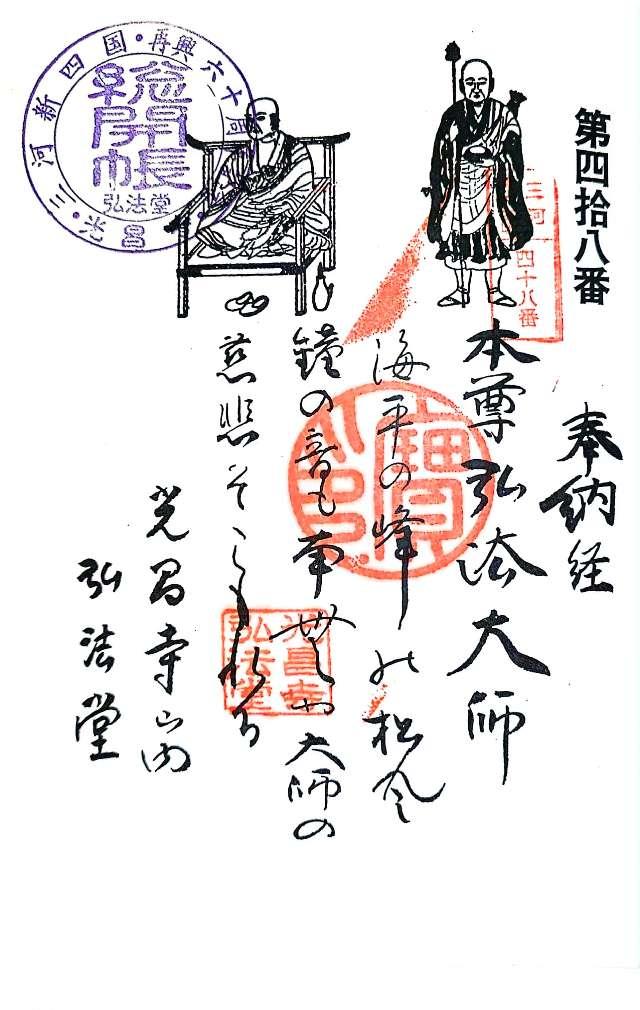 第四拾八番
奉納経
本尊弘法大師
海平の峰の松風
鐘の音も南無や大師の
慈悲そこもれる
光昌寺山内
弘法堂
三河新四国・再興六十周
総開帳
弘法堂
光昌
三河
四十八番
光昌寺
弘法堂